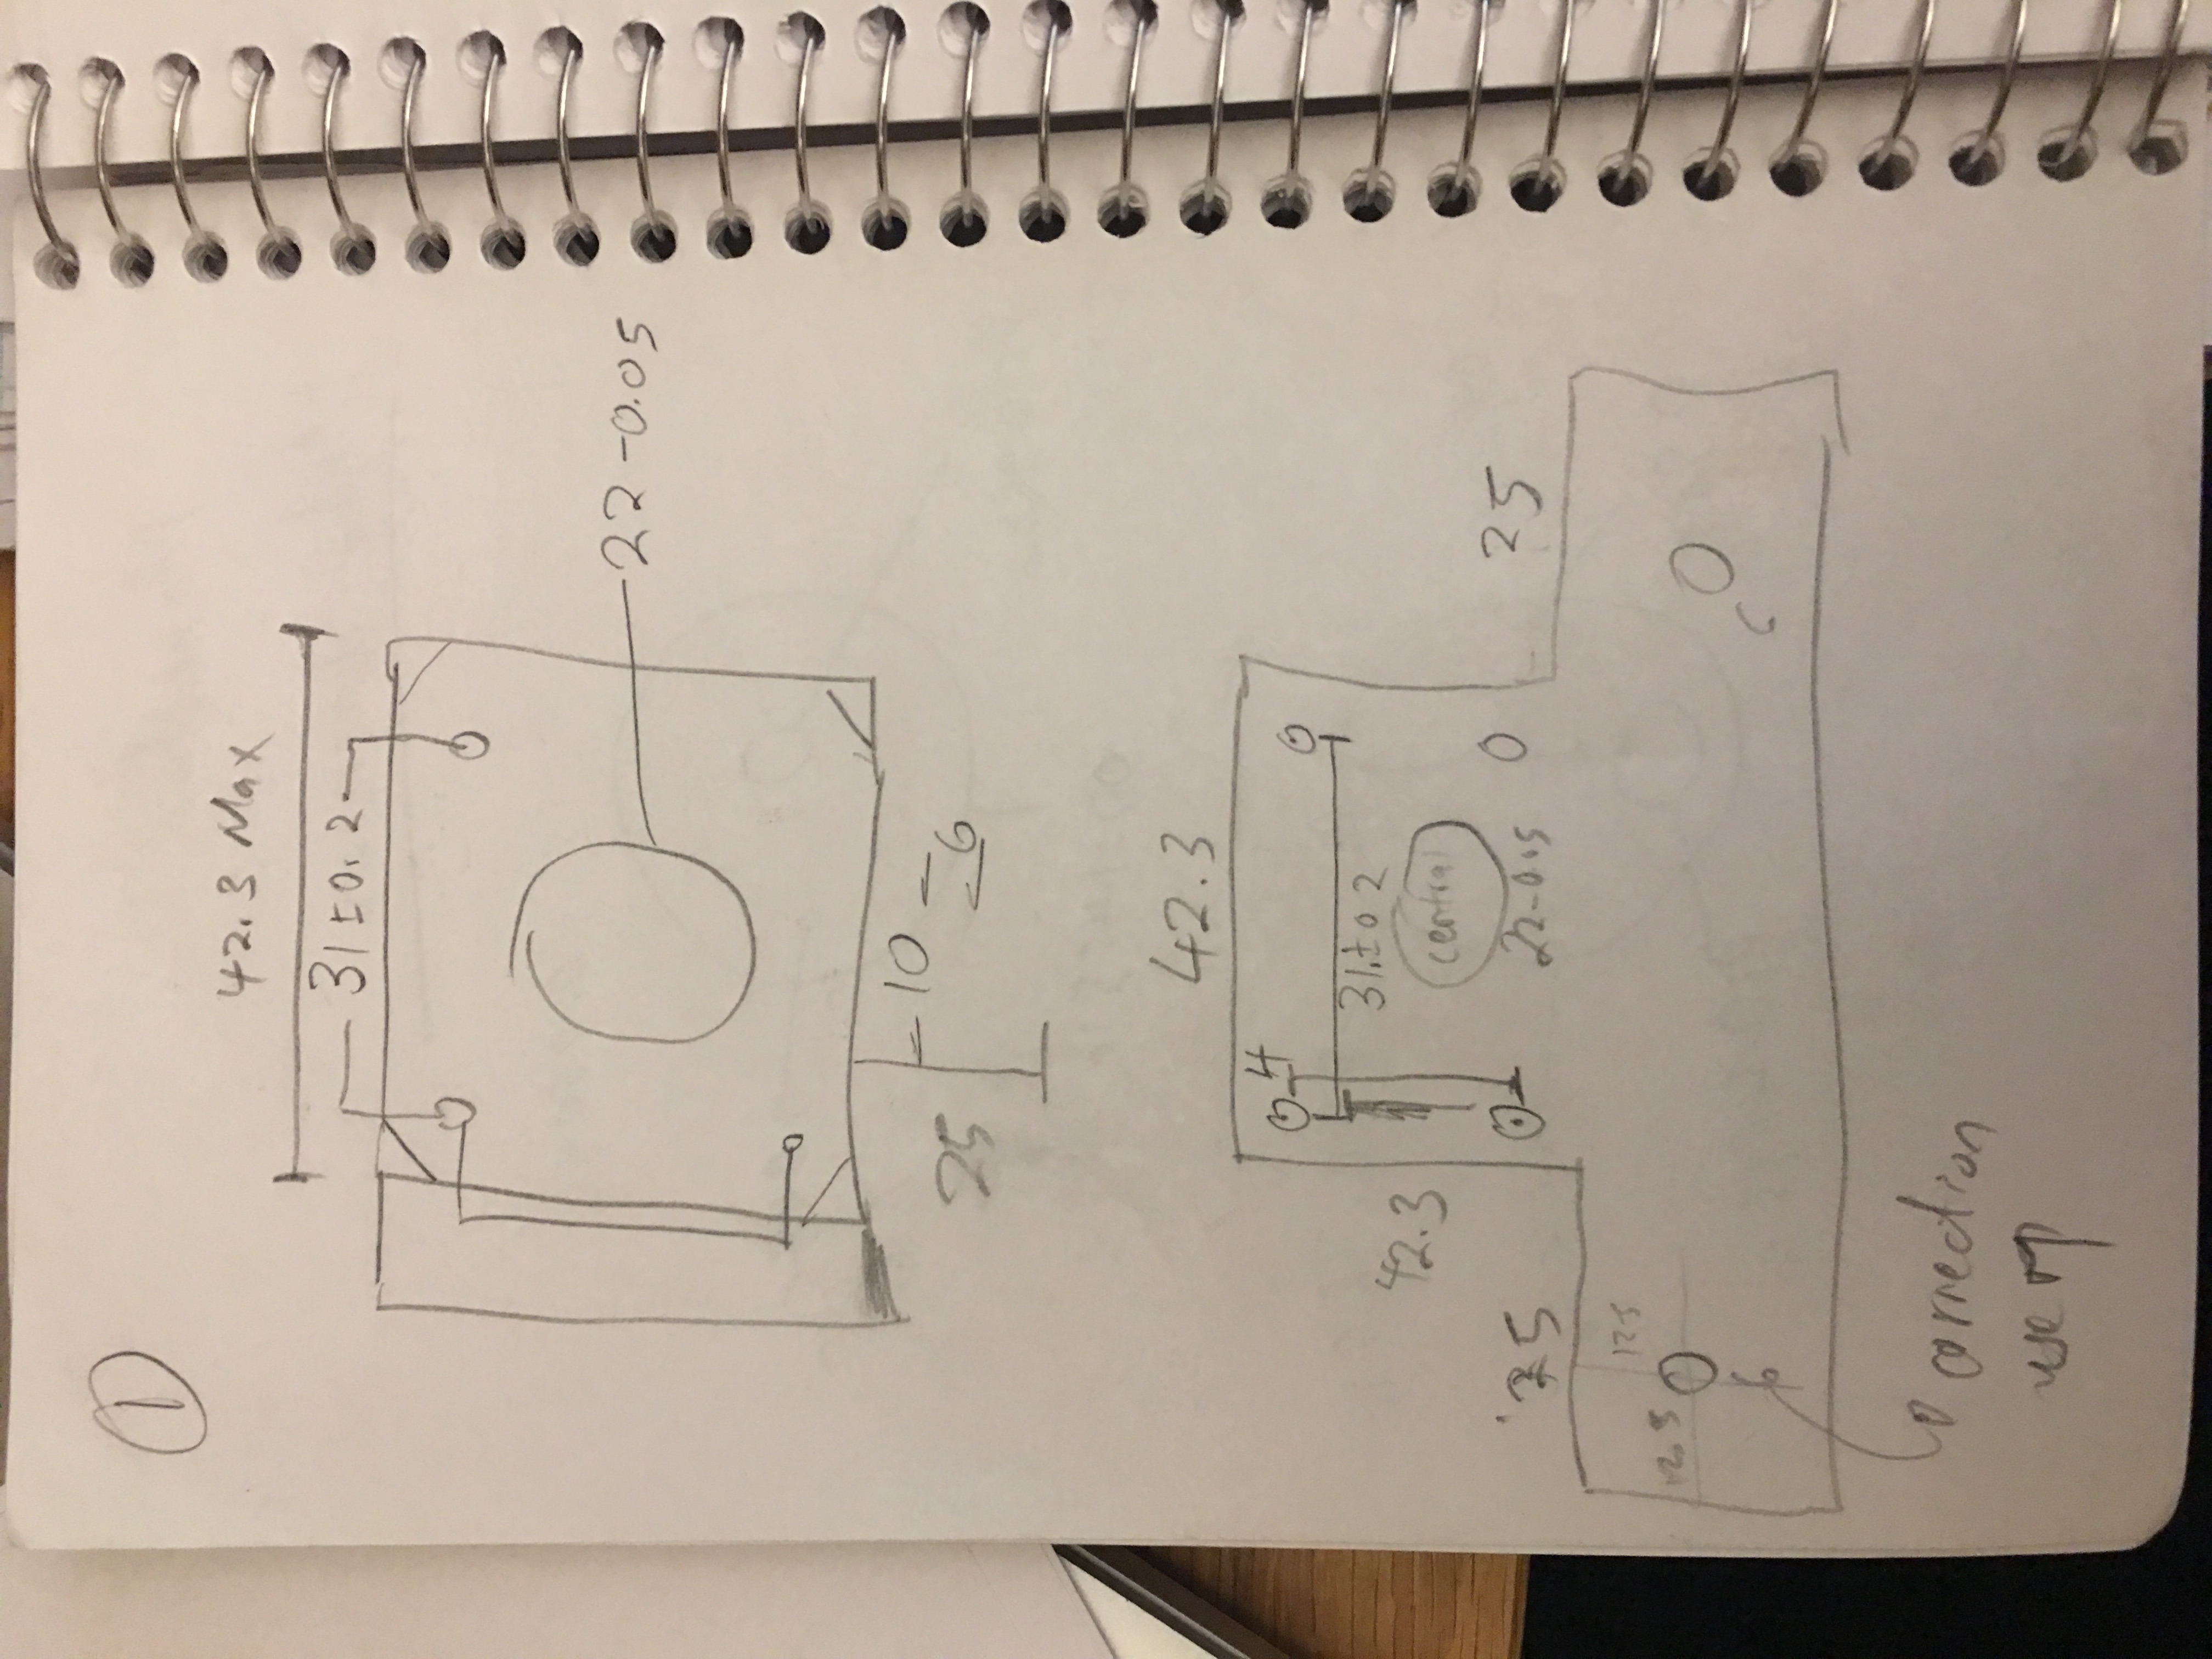 1
42.3 Max
31±0.2
22-0.05
10
6
25
42.3
4
31.±0.2
42.3
central
22-0.05
25
25
12.5
12.5
6
6
correction
use